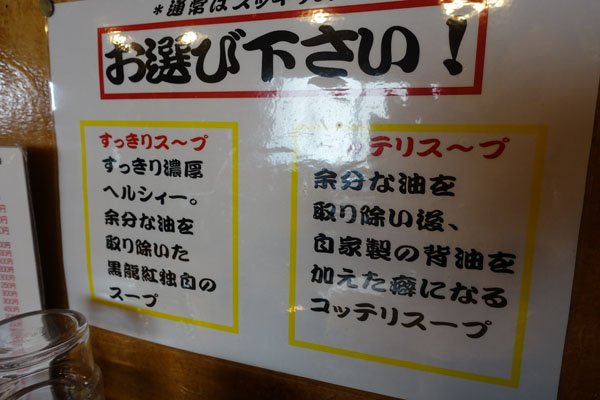 *通常はスッキリ
お選び下さい!
すっきりス〜プ
すっきり濃厚
ヘルシィー。
余分な油を
取り除いた
黒龍紅独自の
スープ
テリス〜プ
余分な油を
取り除い後、
自家製の背油を
加えた癖になる
コッテリスープ